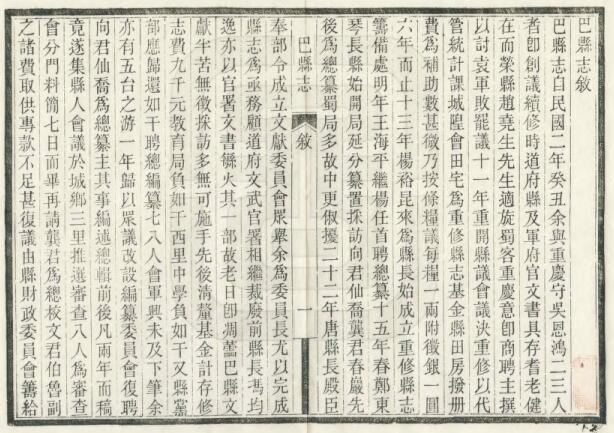 巴縣志敘
巴縣志自民國二年癸丑余與重慶守吳恩鴻二三人
者卽創議續修時道府縣及軍府官文書具存耆老健
在而榮縣趙堯生先生適旋蜀客重慶意卽商聘主撰
以討袁軍敗罷議十一年重開縣議會議決重修以代
管統計課城隍會田宅爲重修縣志基金縣田房撥册
費爲補助數甚微乃按條糧議每糧一兩附徵銀一圓
六年而止十三年楊裕昆來爲縣長始成立重修縣志
籌備處明年王海平繼楊任首聘總纂十五年春鄭東
琴長縣始開局延分纂置採訪向君仙喬龔君春巖先
後爲總纂蜀局多故中更俶擾二十二年唐縣長殿臣
巴縣志 敘 一
奉部令成立文獻委員會眾舉余爲委員長尤以完成
縣志爲亟務顧道府文武官署相繼裁廢前縣長馮均
逸亦以官署文書火其一部故老日卽凋巴縣文
獻半苦無徵採訪多無可施手先後淸釐基金計存修
志費九千元教育局負如干西里中學負如干又縣黨
部應歸還如干聘總編纂七八人會軍興未及下筆余
亦有五台之游一年歸以眾議改設編纂委員會復聘
向君仙喬爲總纂主其事編述總輯前後凡兩年而稿
竟遂集縣人會議於城鄉三里推選審查八人爲審查
會分門料簡七日而畢再請龔君爲總校文君伯魯副
之諸費取供專款不足甚復議由縣財政委員會籌給